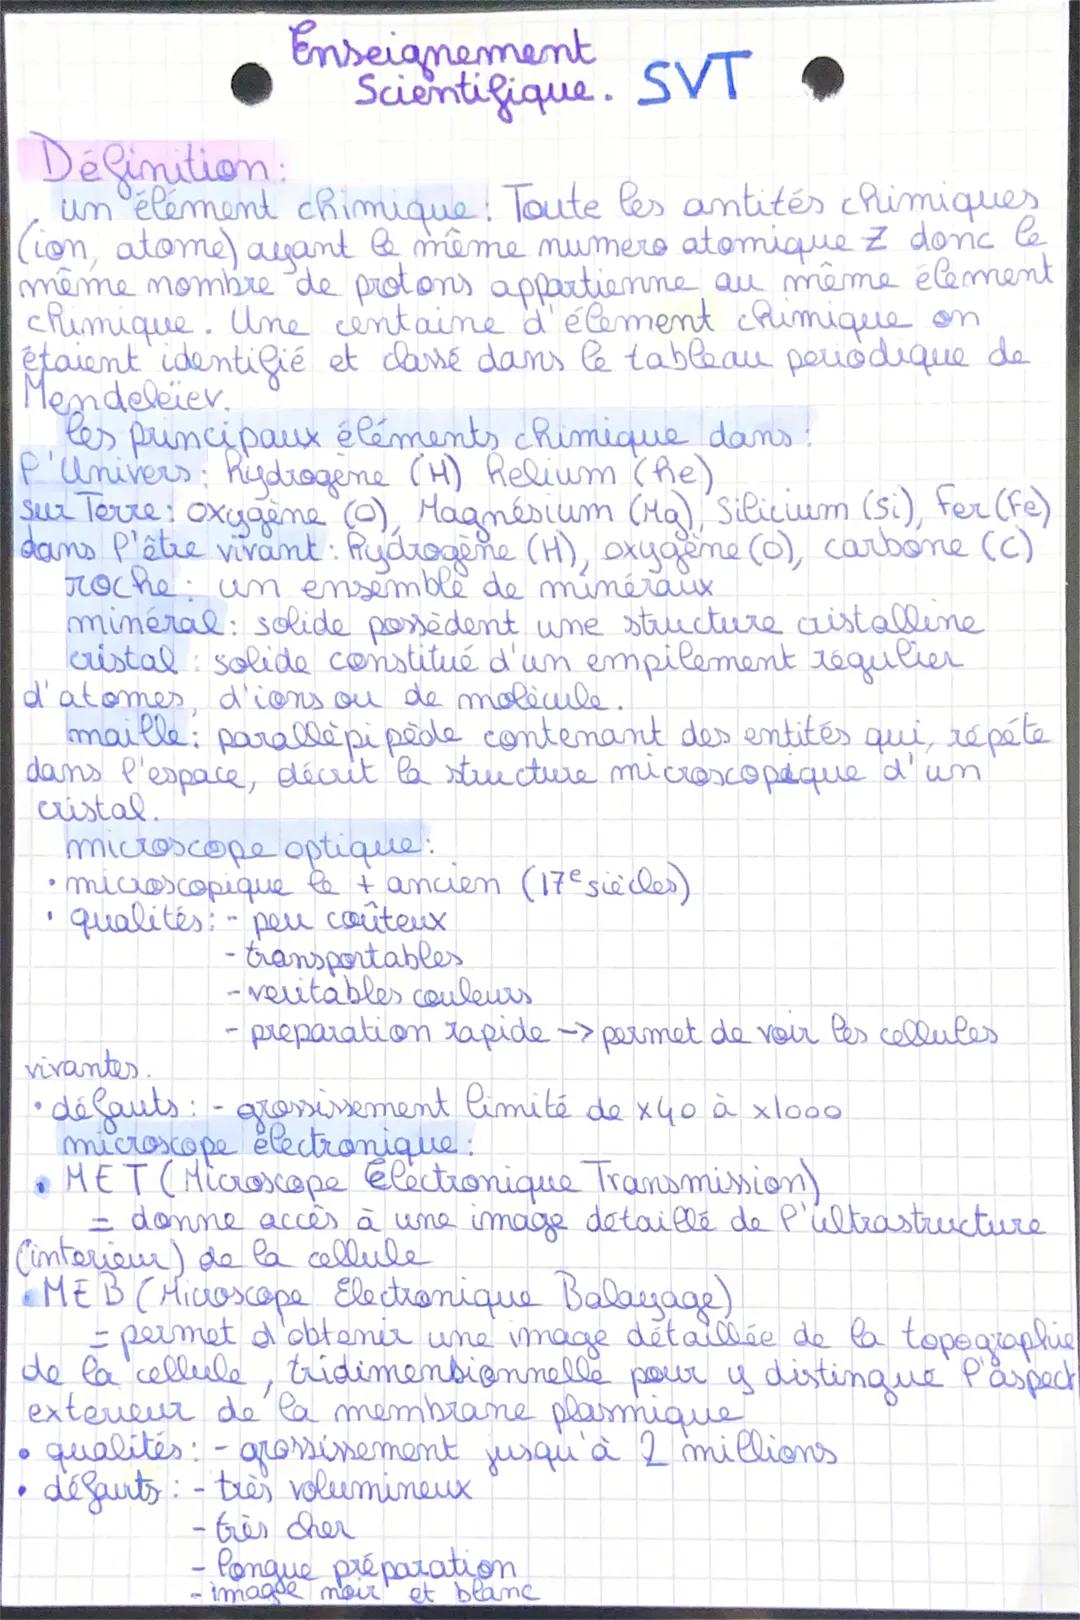 Enseignement
Scientifique. SVT
Définition:
un élément chimique: Toute les antités chimiques
(ion, atome) ayant le même numéro atomique Z donc le
même nombre de protons appartienne au même élément
chimique. Une centaine d'élement chimique on
étaient identifié et classé dans le tableau periodique de
Mendeleïev.
les principaux éléments chimique dans:
l'Univers: hydrogène (H) helium (he)
sur Terre: oxygène (O), Magnésium (Mg), Silicium (Si), Fer (Fe)
dans l'être vivant: hydrogène (H), oxygène (O), carbone (C)
roche: un ensemble de minéraux
minéral: solide possèdent une structure cristalline
cristal: solide constitué d'un empilement régulier
d'atomes, d'ions ou de molécule.
maille: parallèpipède contenant des entités qui, répéte
dans l'espace, décrit la structure microscopique d'un
cristal.
microscope optique:
• microscopique le + ancien (17e siècles)
• qualités: - peu coûteux
- transportables
- veritables couleurs
- preparation rapide -> permet de voir les cellules
vivantes.
• défauts: - grossissement limité de x40 à x1000
microscope électronique:
• MET (Microscope Électronique Transmission)
= donne accès à une image détaillé de l'ultrastructure
(interieur) de la cellule
• MEB (Microscope Electronique Balayage)
= permet d'obtenir une image détaillée de la topographie
de la cellule, tridimensionnelle pour y distingue l'aspect
exterieur de la membrane plasmique
• qualités: - grossissement jusqu'à 2 millions
• défauts: - très volumineux
- très cher
- longue préparation
- image noir et blanc